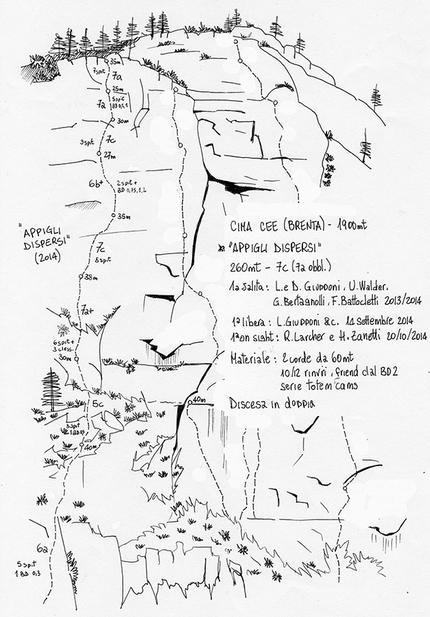 35m
7a
25m
7a
30m
7c
27m
6b+
2 spit +
35m
"APPIGLI
DISPERSI"
(2014)
7c
8 spit
38m
7a+
30m
5c
40m
6a
5 spit
1 BD 0,3
40m
CIMA CEE (BRENTA) - 1900mt
"APPIGLI DISPERSI"
260mt - 7c (7a obbl.)
1a salita: L. e D. Giupponi, U. Walder.
G. Bertagnolli, F. Battocletti 2013/2014
1a libera: L. Giupponi &c. 11 Settembre 2014
1a on sight: R. Larcher e H. Zanetti 20/10/2014
Materiale: 2 corde da 60mt
10/12 rinvii, friend dal BD 2
serie totem cams
Discesa in doppia